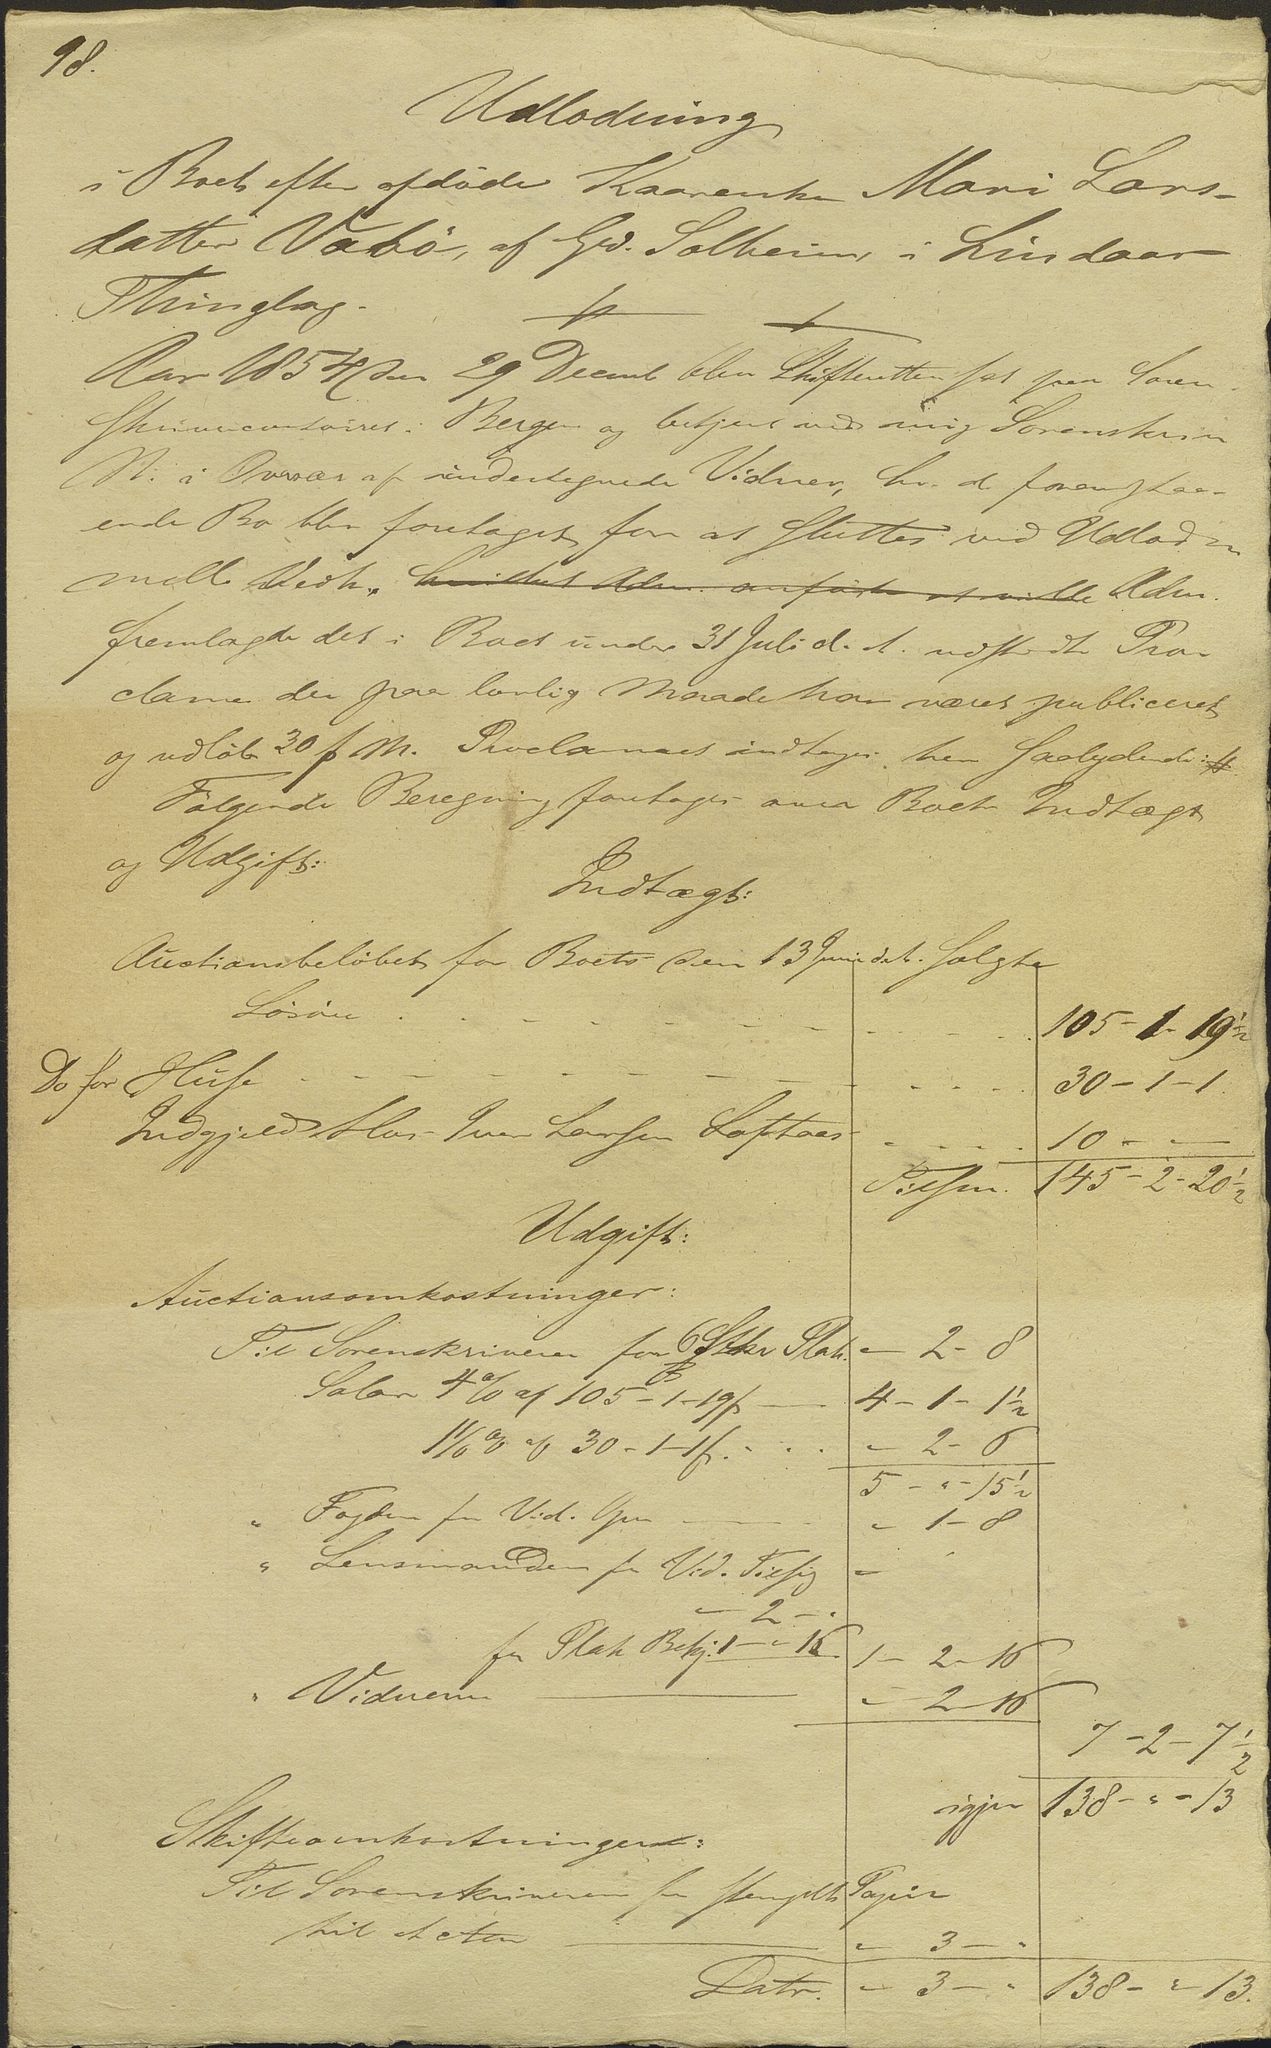 98.
Udlodning
i Boet efter afdöde Kaarenke Mari Lars-
datter Vabö, af Grd. Solheim i Lindaas
Thinglag.
Aar 1854 den 29 Decemb blev Skifteretten sat paa Soren-
skrivercontoiret i Bergen og betjent ved mig Sorenskriver
N. i Overvær af undertegnede Vidner, hv. d. foranstaa-
ende Bo blev foretaget for at sluttes ved Udlodn
melle Vedk. hvilket Adm. anförte at ville Adm.
fremlagde det i Boet under 31 Juli d. A. udstedte Pro-
clama der paa lovlig Maade har været publiceret
og udlöb 30 f. M. Proclamaet indtages her saalydende: #
Fölgende Beregning foretages over Boets Indtægt
og Udgift:
Indtægt:
Auctionsbelöbet for Boets den 13 Juni d. A. solgte
Lösöre 105 - 1 - 19 1/2
Do for Huse 30 - 1 - 1
Indgjeld hos Iver Larsen Loftaas 10 - -
Tilsm. 145 - 2 - 20 1/2
Udgift:
Auctionsomkostninger:
Til Sorenskriveren for 6 Stkr Plak. " 2 - 8
Salar 4 % af 105 - 1 - 19 f 4 - 1 - 1 1/2
% af 30 - 1 - 1 f. " 2 - 6
5 - " - 15 1/2
" Fogden for Vid. " 1 - 8
" Lensmanden for Vid. Tilsig "
" 2 - "
for Plak Bekj. 1 - " - 16 1 - 2 - 16
" Vidnerne " 2 - 16
7 - 2 - 7 1/2
igjen 138 - " - 13
Skifteomkostninger:
Til Sorenskriveren for stemplet Papir
til Acten " 3 - "
Latr. " 3 - " 138 - " - 13.